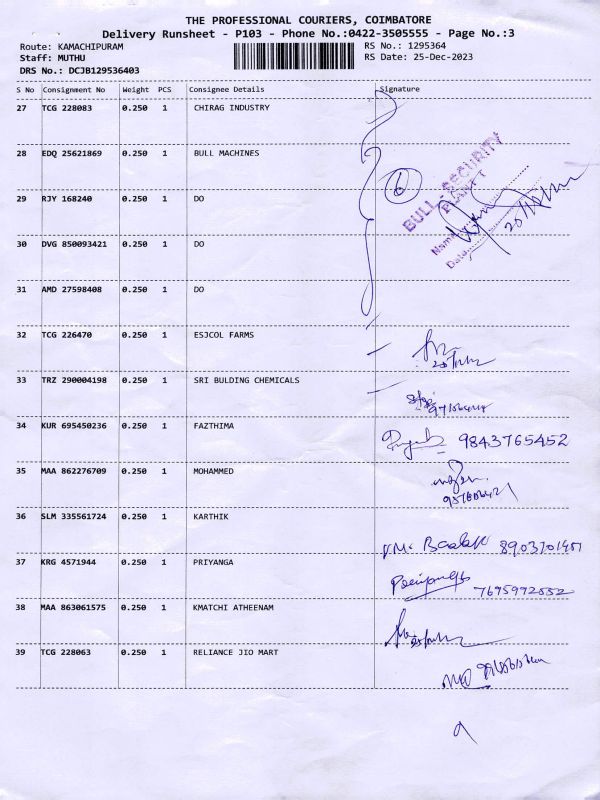 THE PROFESSIONAL COURIERS, COIMBATORE
Delivery Runsheet - P103 - Phone No.:0422-3505555 - Page No.:3
Route: KAMACHIPURAM RS No.: 1295364
Staff: MUTHU RS Date: 25-Dec-2023
DRS No.: DCJB129536403
S No Consignment No Weight PCS Consignee Details Signature
27 TCG 228083 0.250 1 CHIRAG INDUSTRY
28 EDQ 25621869 0.250 1 BULL MACHINES
BULL SECURITY
PLANT
6
29 RJY 168240 0.250 1 DO
Name
Date
30 DVG 850093421 0.250 1 DO
31 AMD 27598408 0.250 1 DO
32 TCG 226470 0.250 1 ESJCOL FARMS
33 TRZ 290004198 0.250 1 SRI BULDING CHEMICALS
34 KUR 695450236 0.250 1 FAZTHIMA
9843765452
35 MAA 862276709 0.250 1 MOHAMMED
36 SLM 335561724 0.250 1 KARTHIK
37 KRG 4571944 0.250 1 PRIYANGA
7695992552
38 MAA 863061575 0.250 1 KMATCHI ATHEENAM
39 TCG 228063 0.250 1 RELIANCE JIO MART